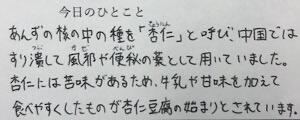 今日のひとこと
あんずの核の中の種を「杏仁」と呼び、中国では
すり潰して風邪や便秘の薬として用いていました。
杏仁には苦味があるため、牛乳や甘味を加えて
食べやすくしたものが杏仁豆腐の始まりとされています。